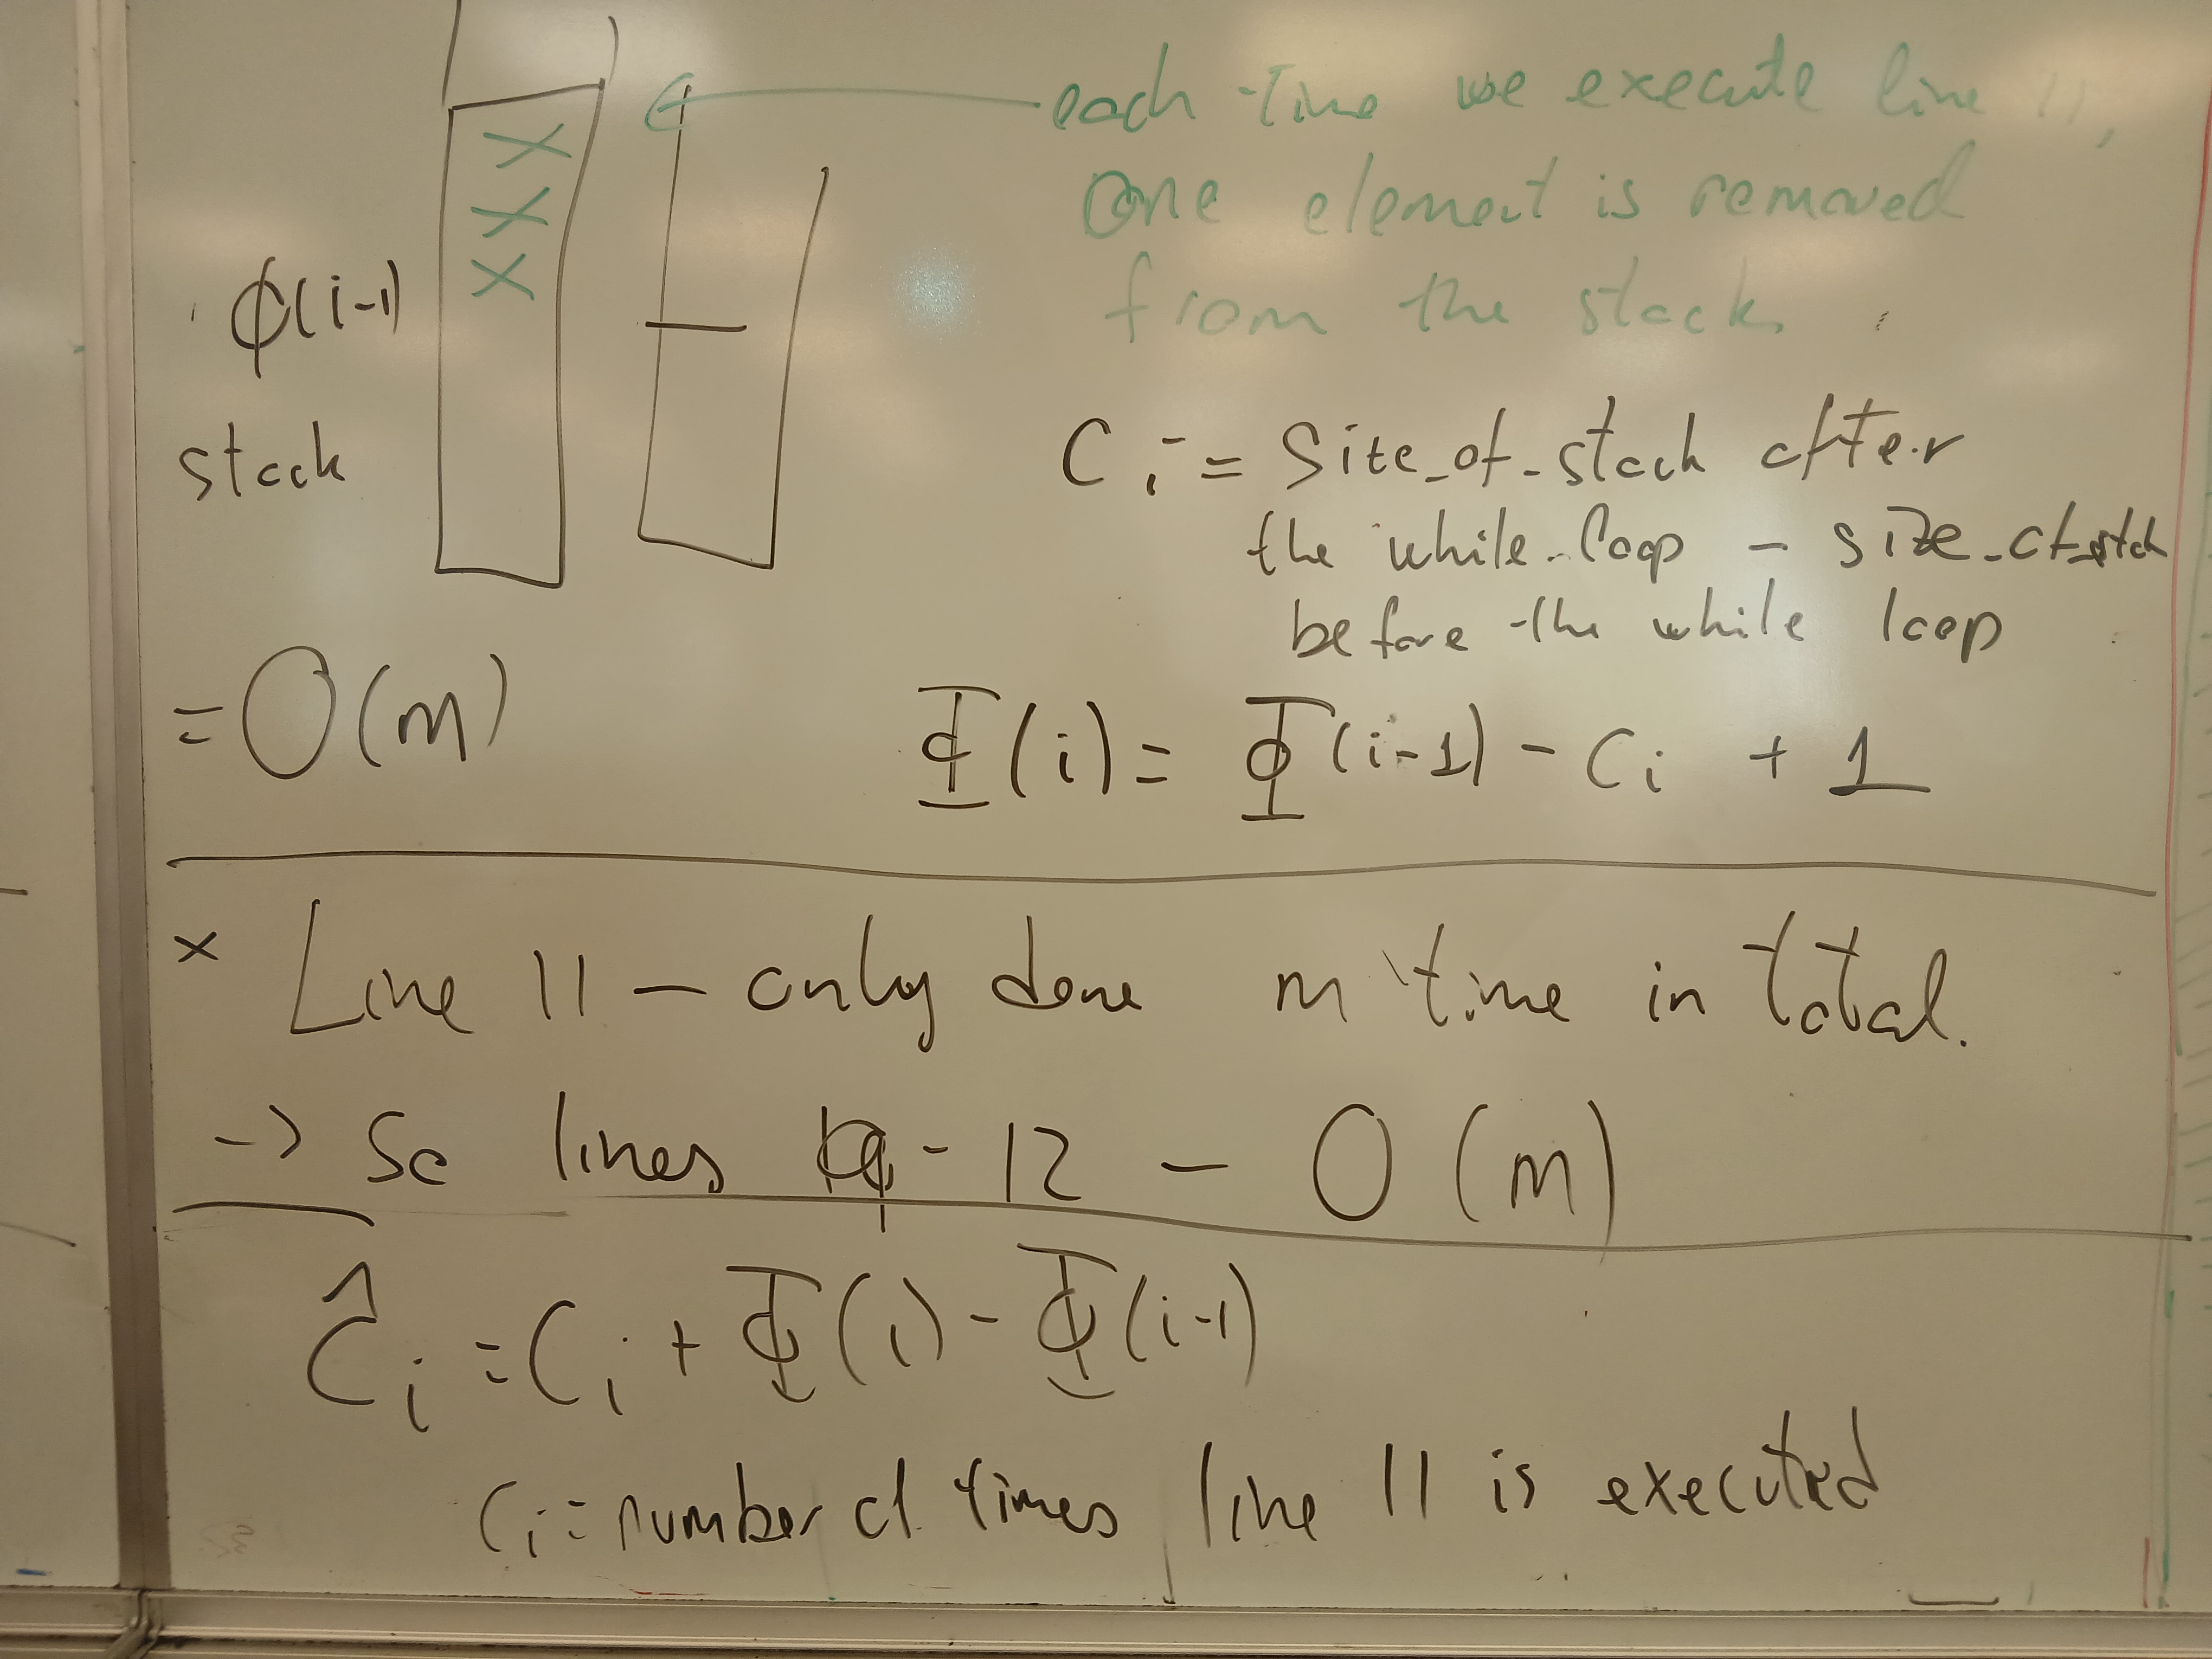 each time we execute line 11,
one element is removed
from the stack.
ϕ(i-1)
stack
Ci = Site_of_stack after
the while-loop - size_of_stack
before the while loop
= O(m)
Φ(i) = Φ(i-1) - Ci + 1
× Line 11 - only done m time in total.
-> So lines - 12 - O(m)
Ĉi = Ci + Φ(i) - Φ(i-1)
Ci = number of times line 11 is executed